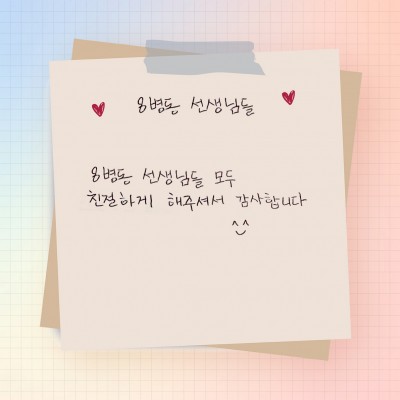 ♥ 8병동 선생님들 ♥
8병동 선생님들 모두
친절하게 해주셔서 감사합니다
^^